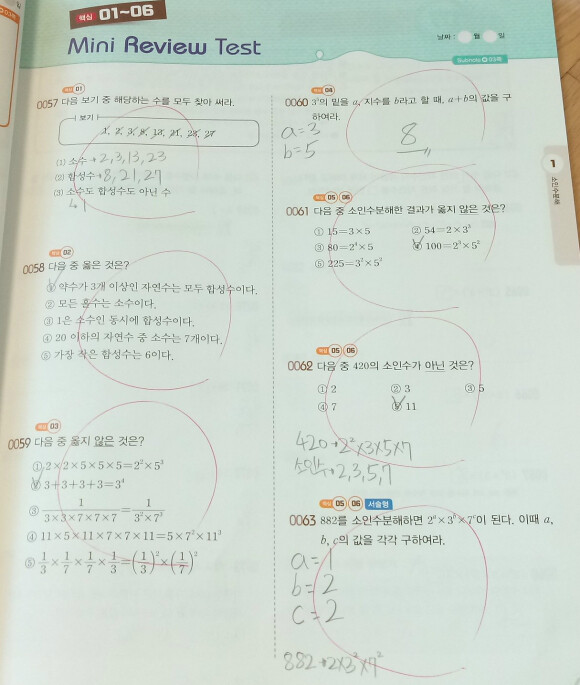 핵심 01~06
Mini Review Test
날짜 : 월 일
핵심 01
0057 다음 보기 중 해당하는 수를 모두 찾아 써라.
보기
1, 2, 3, 8, 13, 21, 23, 27
(1) 소수 → 2, 3, 13, 23
(2) 합성수 → 8, 21, 27
(3) 소수도 합성수도 아닌 수
핵심 02
0058 다음 중 옳은 것은?
① 약수가 3개 이상인 자연수는 모두 합성수이다.
② 모든 홀수는 소수이다.
③ 1은 소수인 동시에 합성수이다.
④ 20 이하의 자연수 중 소수는 7개이다.
⑤ 가장 작은 합성수는 6이다.
핵심 03
0059 다음 중 옳지 않은 것은?
① 2×2×5×5×5=2²×5³
② 3+3+3+3=3⁴
③ 1/(3×3×7×7×7)=1/(3²×7³)
④ 11×5×11×7×7×11=5×7²×11³
⑤ 1/3×1/7×1/7×1/3=(1/3)²×(1/7)²
핵심 04
0060 3⁵의 밑을 a, 지수를 b라고 할 때, a+b의 값을 구
하여라.
a=3
b=5
8
핵심 05 06
0061 다음 중 소인수분해한 결과가 옳지 않은 것은?
① 15=3×5 ② 54=2×3³
③ 80=2⁴×5 ④ 100=2³×5²
⑤ 225=3²×5²
핵심 05 06
0062 다음 중 420의 소인수가 아닌 것은?
① 2 ② 3 ③ 5
④ 7 ⑤ 11
420→2²×3×5×7
소인수→2,3,5,7
핵심 05 06 서술형
0063 882를 소인수분해하면 2ᵃ×3ᵇ×7ᶜ이 된다. 이때 a,
b, c의 값을 각각 구하여라.
a=1
b=2
c=2
882→2×3²×7²
1
소인수분해